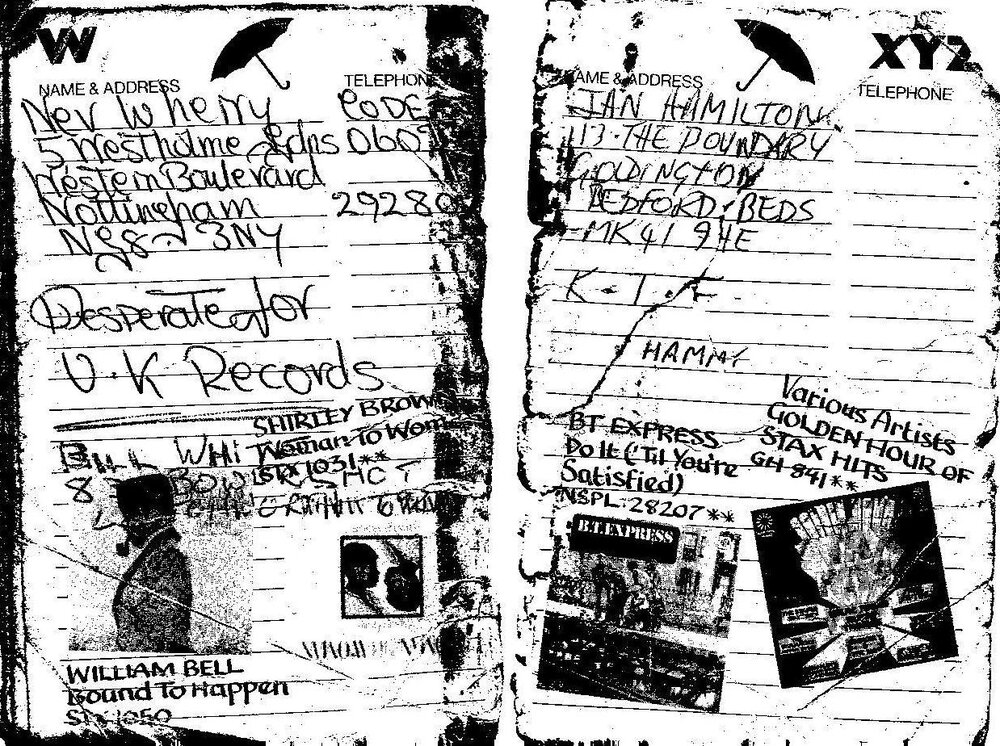 W
NAME & ADDRESS TELEPHON
Nev Wherry CODE
5 Westholme Gdns 0602
Western Boulevard
Nottingham 29280
NG8 3NY
Desperate for
U.K Records
SHIRLEY BROWN
Woman To Wom
STX 1031**
BILL WHI
8
WILLIAM BELL
Bound To Happen
STX 1050
XYZ
NAME & ADDRESS TELEPHONE
IAN HAMILTON
113 THE BOUNDARY
GOLDINGTON
BEDFORD, BEDS
MK41 9HE
K.T.F
HAMMY
BT EXPRESS
Do It ('Til You're
Satisfied)
NSPL.28207**
Various Artists
GOLDEN HOUR OF
STAX HITS
GH 841**
B.T. EXPRESS